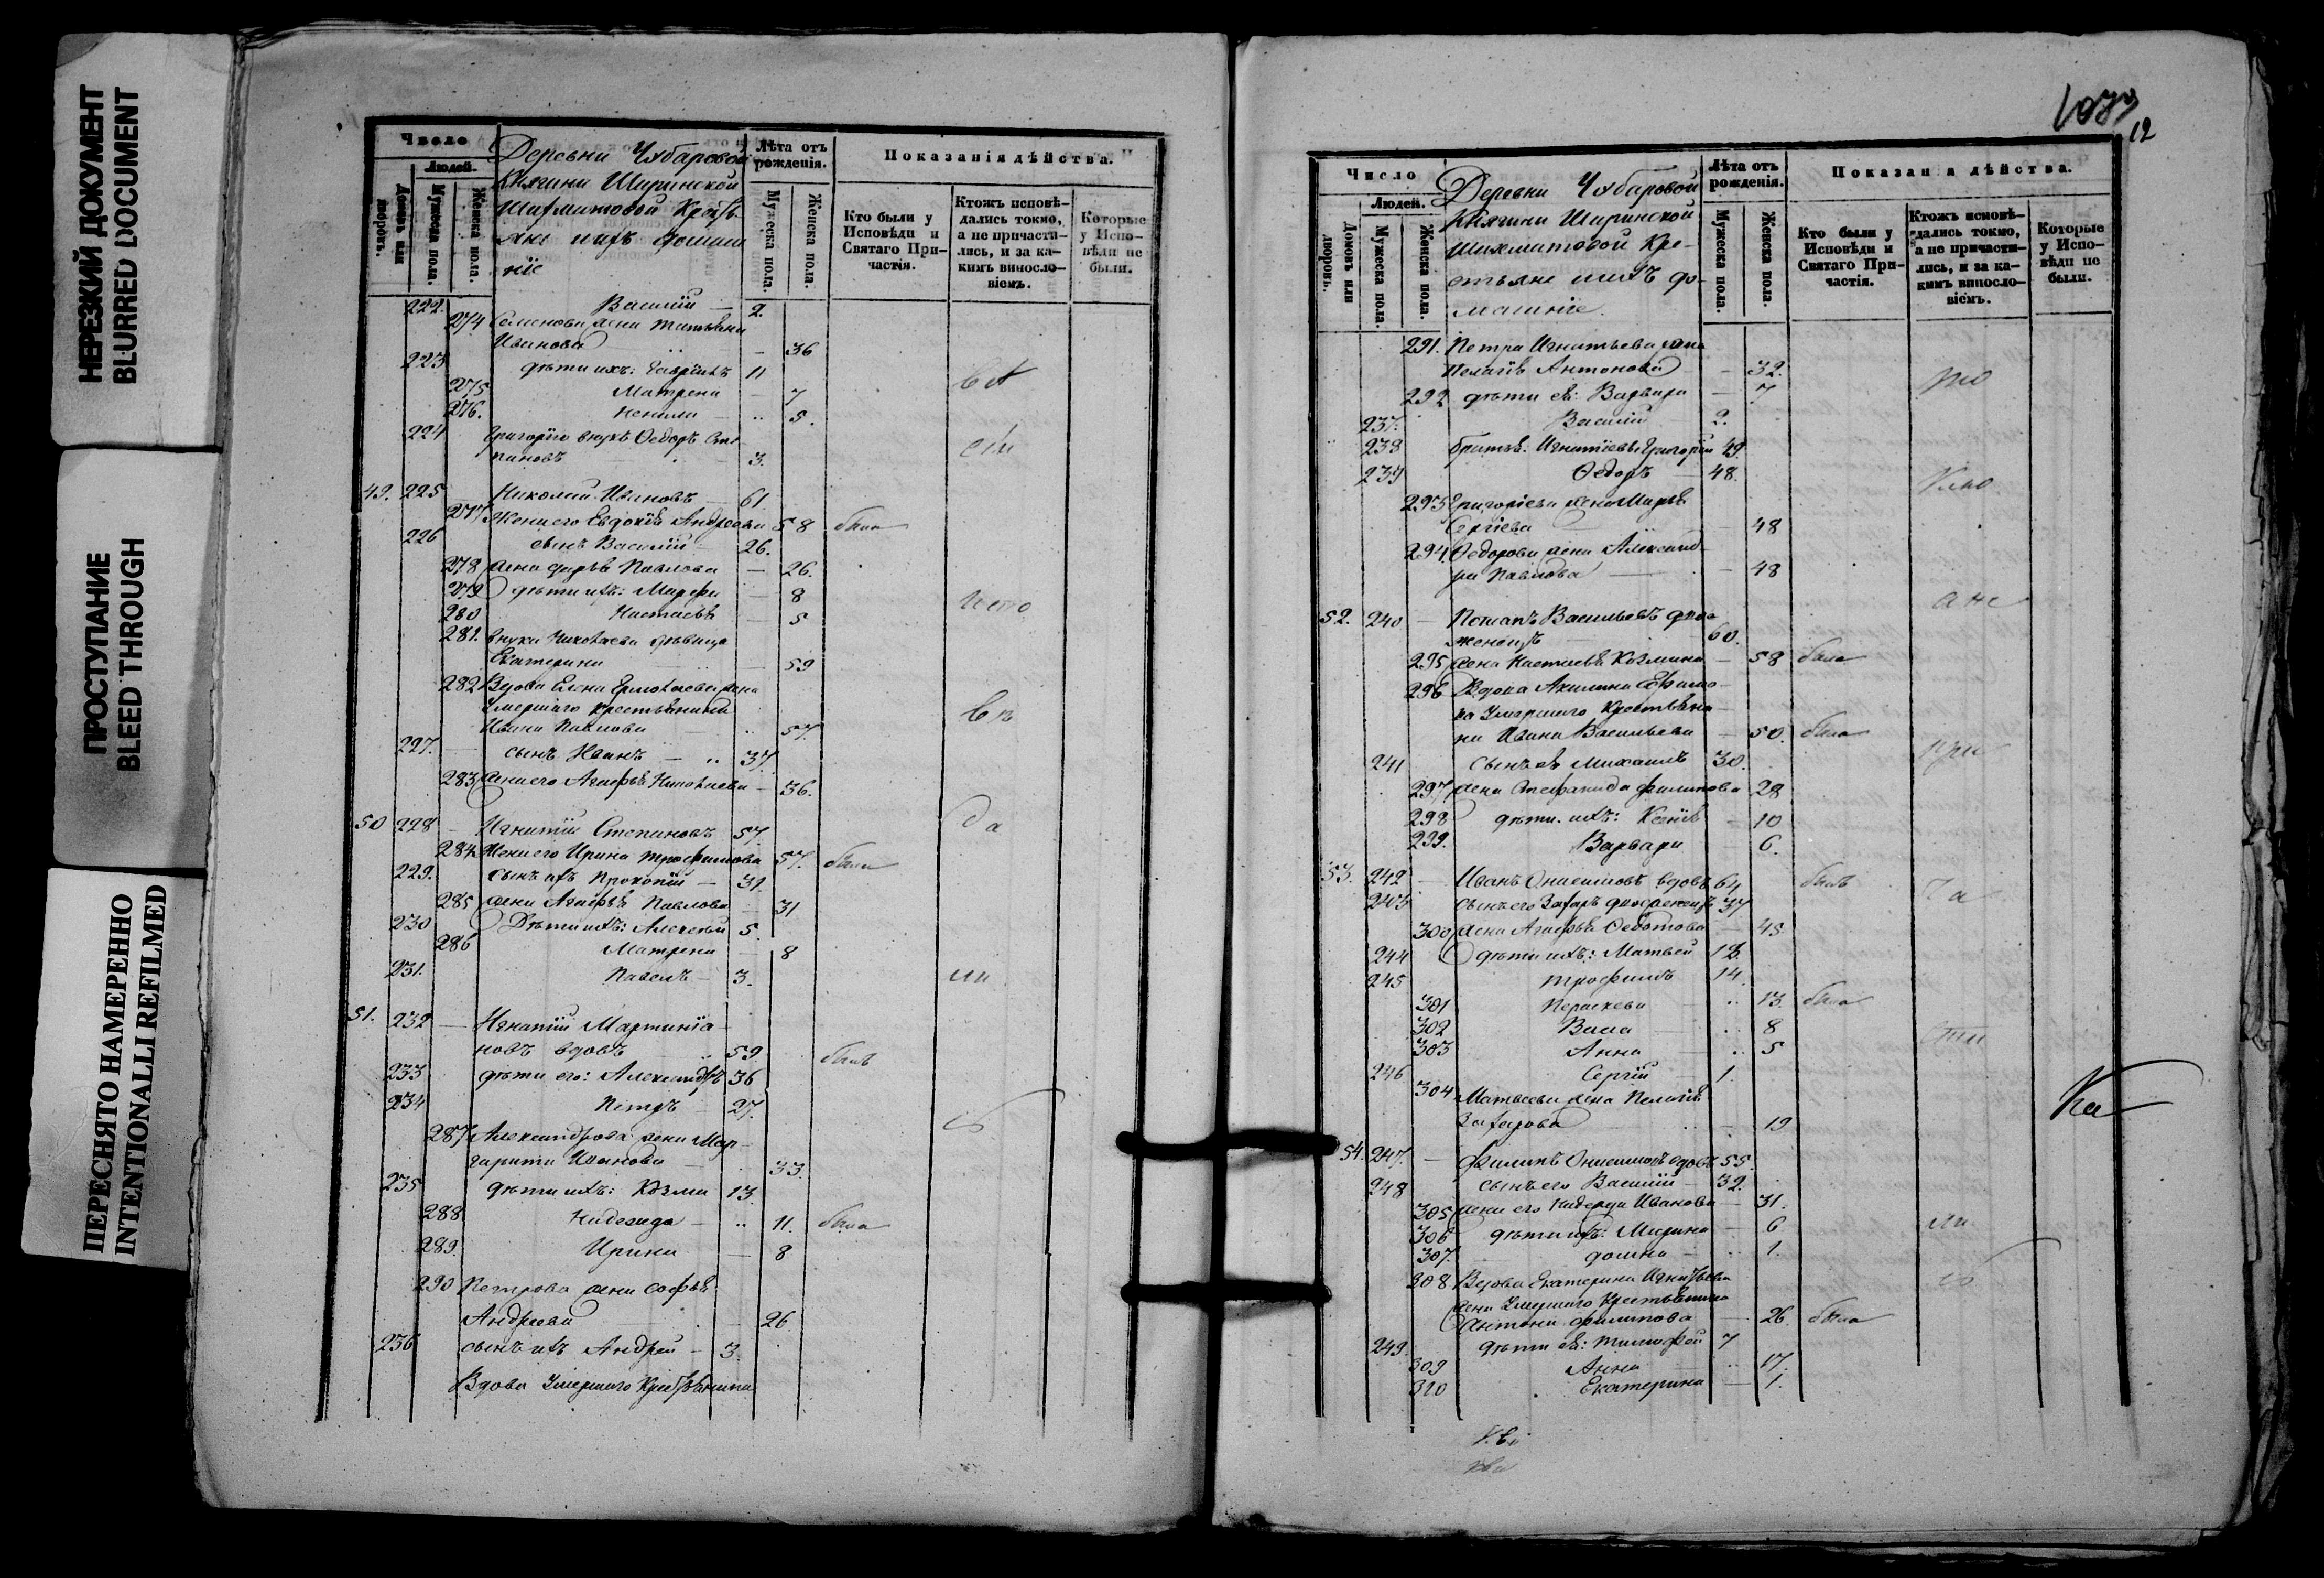 НЕРЕЗКИЙ ДОКУМЕНТ
BLURRED DOCUMENT
ПРОСТУПАНИЕ
BLEED THROUGH
ПЕРЕСНЯТО НАМЕРЕННО
INTENTIONALLI REFILMED
Число
Людей.
Домовъ или дворовъ.
Мужеска пола.
Женска пола.
Деревни Чубаровой
Княгини Ширинской
Шихматовой Крестья
не ихъ домаш
ніе
Лѣта отъ рожденія.
Мужеска пола.
Женска пола.
Показанія дѣйства.
Кто были у Исповѣди и Святаго Причастія.
Ктожъ исповѣдались токмо, а не причастились, и за какимъ винословіемъ.
Которые у Исповѣди не были.
222. Василій 2.
274 Семенова жена Татьяна
Иванова 36
223 дѣти ихъ: Гавріилъ 11
275 Матрена 7
276. Ненила 5.
224 Григорія внукъ Ѳедоръ Сте
пановъ 3.
49. 225 Николай Ивановъ 61
277 Жена его Евдокія Андреева 58 была
226 сынъ Василій 26.
278 жена Дарья Павлова 26.
279 дѣти ихъ: Марфа 8
280 Настасья 5
281. внука Николаева дѣвица
Екатерина 59
282 Вдова Елена Ермолаева жена
Умершаго крестьянина
Ивана Павлова 57.
227. сынъ Иванъ 37.
283 жена его Агафья Николаева 36.
50 228 Игнатій Степановъ 57.
284 Жена его Ирина Трофимова 57. была
229. сынъ ихъ Прокопій 31.
285 жена Агафья Павлова 31
230 Дѣти ихъ: Алексѣй 5.
286 Матрена 8
231. Павелъ 3.
51. 232 Игнатій Мартинїа
новъ вдовъ 59 былъ
233 дѣти его: Александръ 36
234 Петръ 27.
287 Александрова жена Мар
гарита Иванова 33.
235 дѣти ихъ: Козма 13.
288 Надежда 11. была
289. Ирина 8
290 Петрова жена Софья
Андреева 26
236 сынъ ихъ Андрей 3.
Вдова Умершаго Крестьянина
12
Число
Людей.
Домовъ или дворовъ.
Мужеска пола.
Женска пола.
Деревни Чубаровой
Княгини Ширинской
Шихматовой Кре-
стьяне ихъ до-
машніе.
Лѣта отъ рожденія.
Мужеска пола.
Женска пола.
Показан а дѣйства.
Кто были у Исповѣди и Святаго Причастія.
Ктожъ исповѣдались токмо, а не причастились, и за какимъ винословіемъ.
Которые у Исповѣди не были.
291. Петра Игнатьева жена
Пелагія Антонова 32.
292 дѣти ея: Варвара 7
237. Василій 2.
238 братья Игнатіевы Григорій 49.
239 Ѳедоръ 48.
293 Григоріева жена Марья
Сергіева 48
294. Ѳедорова жена Александ
ра Павлова 48
52. 240 Потапъ Васильевъ двое
женецъ 60.
295 жена Настасья Козмина 58 была
296 Вдова Акилина Ефимо
ва Умершаго Крестьяни
на Ивана Васильева 50. была
241 сынъ ея Михаилъ 30.
297 жена Степанида Филипова 28
298 дѣти ихъ: Ксенія 10
299. Варвара 6.
53. 242 Иванъ Онисимовъ вдовъ 64 былъ
243 сынъ его Захаръ двоеженецъ 37
300 жена Агафья Ѳедотова 45
244 дѣти ихъ: Матвей 18.
245 Трофимъ 14.
301 Перасковья 13. была
302 Васса 8
303 Анна 5
246 Сергій 1.
304 Матвеева жена Пелагія
Захарова 19
54. 247. Филипъ Онисимовъ вдовъ 55.
248 сынъ его Василій 32.
305 жена его Надежда Иванова 31.
306 дѣти ихъ: Марина 6
307. Домна 1.
308 Вдова Екатерина Игнатьева
жена Умершаго Крестьянина
Антона Филипова 26. была
249. дѣти ея: Тимофей 7
309 Анна 17.
310 Екатерина 1.